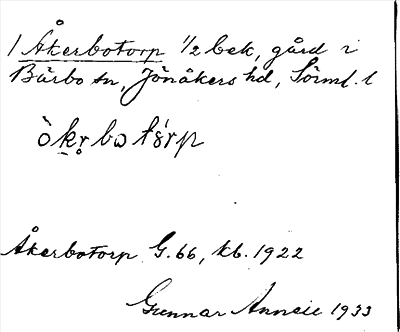 1 Åkerbotorp 1/2 bek, gård i
Bärbo sn, Jönåkers hd, Sörml. l
òkr̥bωtórp
Åkerbotorp G. 66, kb. 1922
Gunnar Anneie 1933